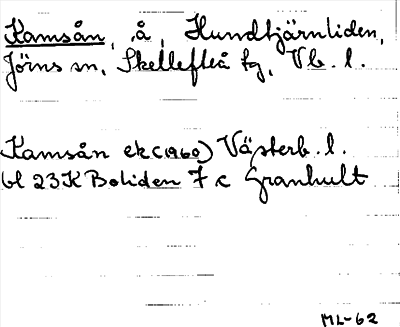 Kamsån, å, Hundtjärnliden,
Jörns sn, Skellefteå tg, Vb. l.
Kamsån ek (1960) Västerb. l.
bl 23K Boliden 7 c Granhult
ML-62